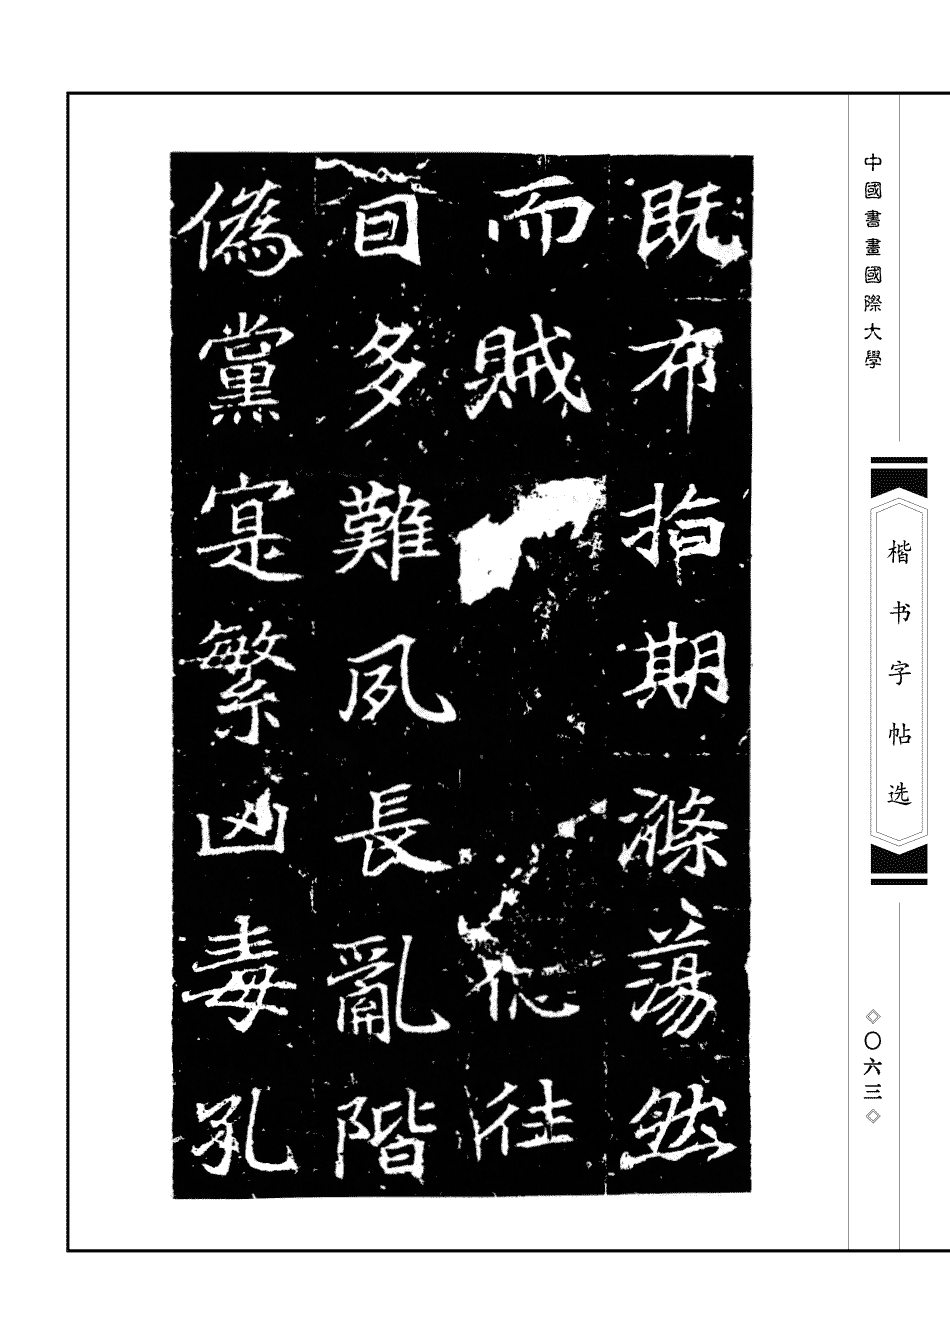 中國書畫國際大學
楷书字帖选
◇〇六三◇
既布指期滌蕩然
而賊往
囙多難夙長亂階
偽黨寔繁凶毒孔